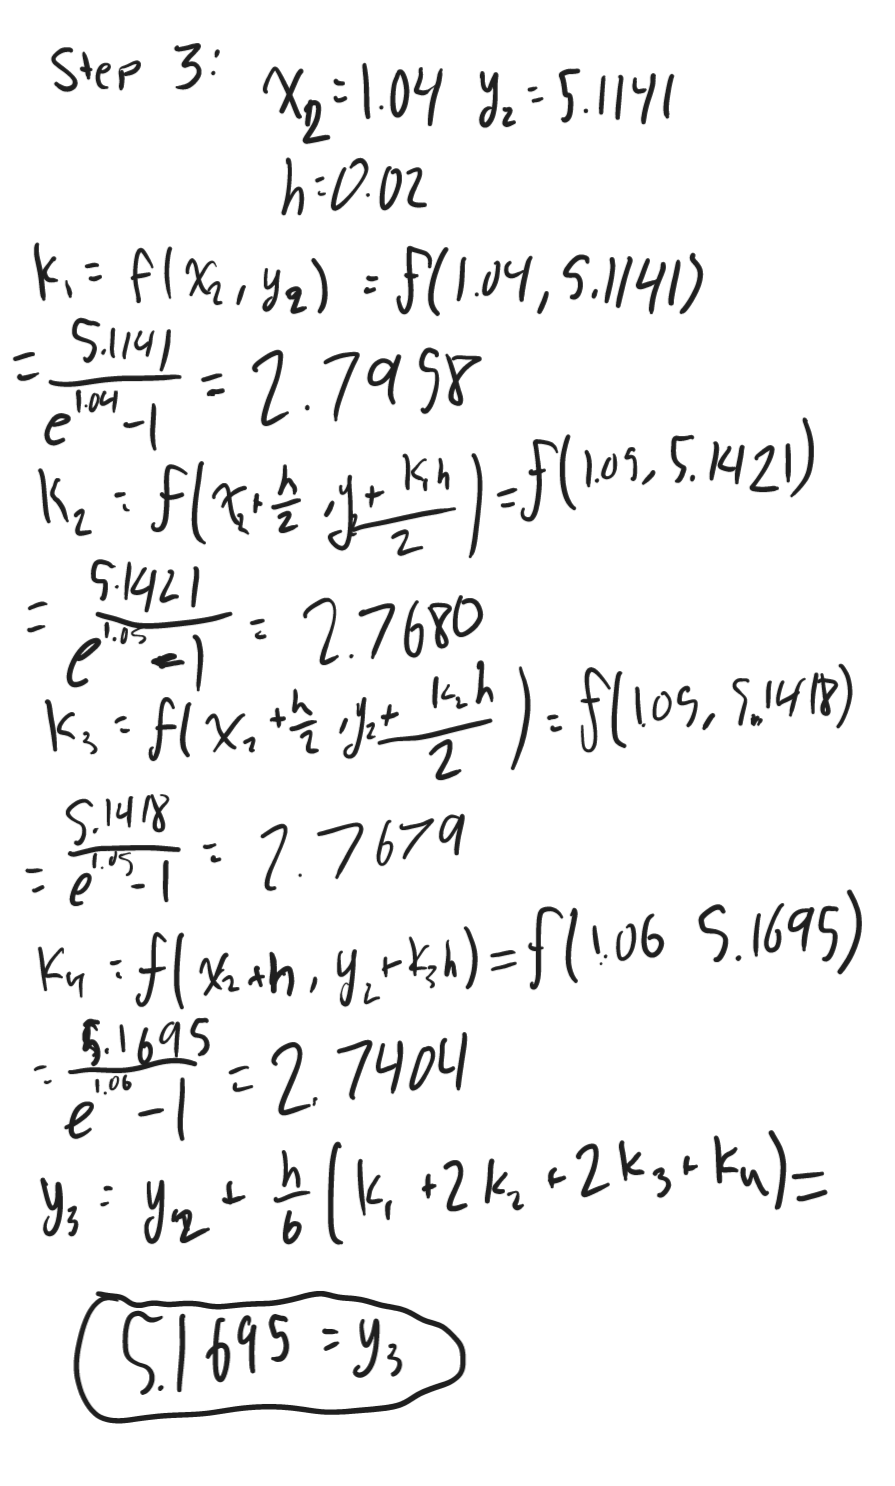 Step 3: x₂=1.04 y₂=5.1141
h=0.02
k₁ = f(x₂, y₂) = f(1.04, 5.1141)
= 5.1141/(e^1.04 - 1) = 2.7958
k₂ = f(x₂+h/2, y₂+k₁h/2) = f(1.05, 5.1421)
= 5.1421/(e^1.05 - 1) = 2.7680
k₃ = f(x₂+h/2, y₂+k₂h/2) = f(1.05, 5.1418)
= 5.1418/(e^1.05 - 1) = 2.7679
k₄ = f(x₂+h, y₂+k₃h) = f(1.06 5.1695)
= 5.1695/(e^1.06 - 1) = 2.7404
y₃ = y₂ + h/6 (k₁ + 2k₂ + 2k₃ + k₄) =
5.1695 = y₃